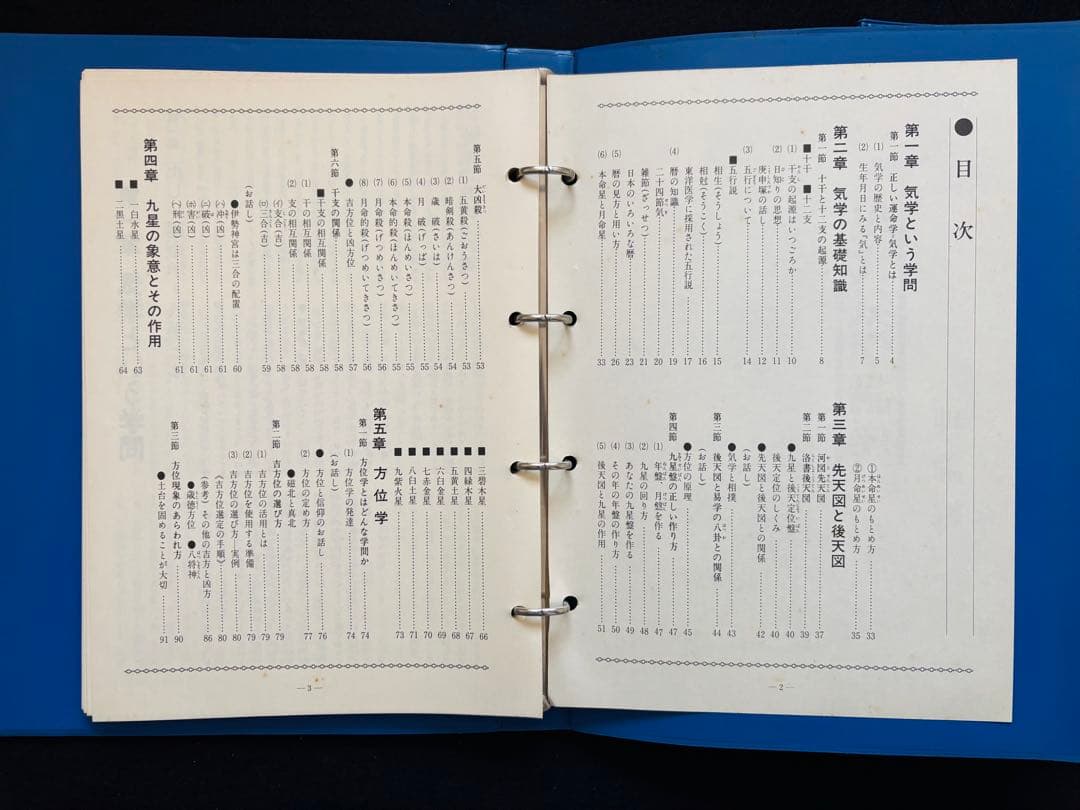 ●目次
第一章 気学という学問
第一節 正しい運命学・気学とは……4
(1) 気学の歴史と内容……5
(2) 生年月日にみる「気」とは……7
第二章 気学の基礎知識
第一節 十干と十二支の起源……8
■十干 ■十二支
(1) 干支の起源はいつごろか……10
(2) 日知りの思想……11
庚申塚の話し……12
(3) 五行について……14
■五行説
相生(そうしょう)……15
相尅(そうこく)……16
東洋医学に採用された五行説……17
(4) 暦の知識……19
二十四節気……20
雑節(ざっせつ)……21
日本のいろいろな暦……23
(5) 暦の見方と用い方……26
(6) 本命星と月命星……33
①本命星のもとめ方……33
②月命星のもとめ方……35
第三章 先天図と後天図
第一節 河図先天図……37
第二節 洛書後天図……39
●九星と後天定位盤……40
後天定位のしくみ……40
●先天図と後天図との関係……42
(お話し)
●気学と相撲……43
第三節 後天図と易学の八卦との関係……44
(お話し)
●方位の原理……45
第四節 九星盤の正しい作り方……47
(1) 年盤・月盤を作る……47
(2) 九星の回り方……48
(3) あなたの九星盤を作る……49
(4) その年の年盤の作り方……50
(5) 後天図と九星の作用……51
―2―
第五節 大凶殺……53
(1) 五黄殺(ごおうさつ)……53
(2) 暗剣殺(あんけんさつ)……54
(3) 歳破(さいは)……54
(4) 月破(げっぱ)……55
(5) 本命殺(ほんめいさつ)……55
(6) 本命的殺(ほんめいてきさつ)……55
(7) 月命殺(げつめいさつ)……56
(8) 月命的殺(げつめいてきさつ)……56
●吉方位と凶方位……57
第六節 干支の関係……58
■干支の相互関係
(1) 干の相互関係……58
(2) 支の相互関係……58
(イ)支合(吉)……58
(ロ)三合(吉)……59
(お話し)
●伊勢神宮は三合の配置……60
(ハ)冲(凶)……61
(ニ)破(凶)……61
(ホ)害(凶)……61
(ヘ)刑(凶)……61
第四章 九星の象意とその作用
■一白水星……63
■二黒土星……64
■三碧木星……66
■四緑木星……67
■五黄土星……68
■六白金星……69
■七赤金星……70
■八白土星……71
■九紫火星……73
第五章 方位学
第一節 方位学とはどんな学問か……74
(1) 方位学の発達……74
(お話し)
●方位と信仰のお話し……76
(2) 方位の定め方……77
●磁北と真北
第二節 吉方位の選び方……79
(1) 吉方位の活用とは……79
(2) 吉方位を使用する準備……79
(3) 吉方位の選び方―実例……80
《吉方位選定の手順》……80
(参考)その他の吉方と凶方……86
●歳徳方位 ●八将神
第三節 方位現象のあらわれ方……90
●土台を固めることが大切……91
―3―